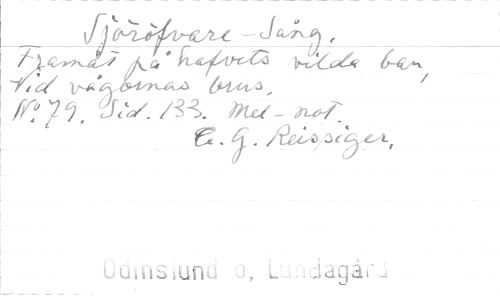 Sjöröfvare-Sång.
Framåt på hafvets vilda ban,
Vid vågornas brus.
No. 79. Sid. 133. Mel-not.
C. G. Reissiger.
Odinslund o, Lundagård